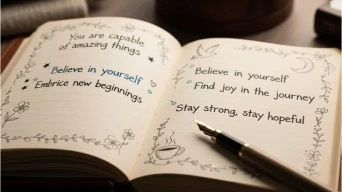 You are capable
of amazing things
Believe in yourself
Embrice new beginnings
Believe in yourself
Find joy in the journey
Stay strong, stay hopeful